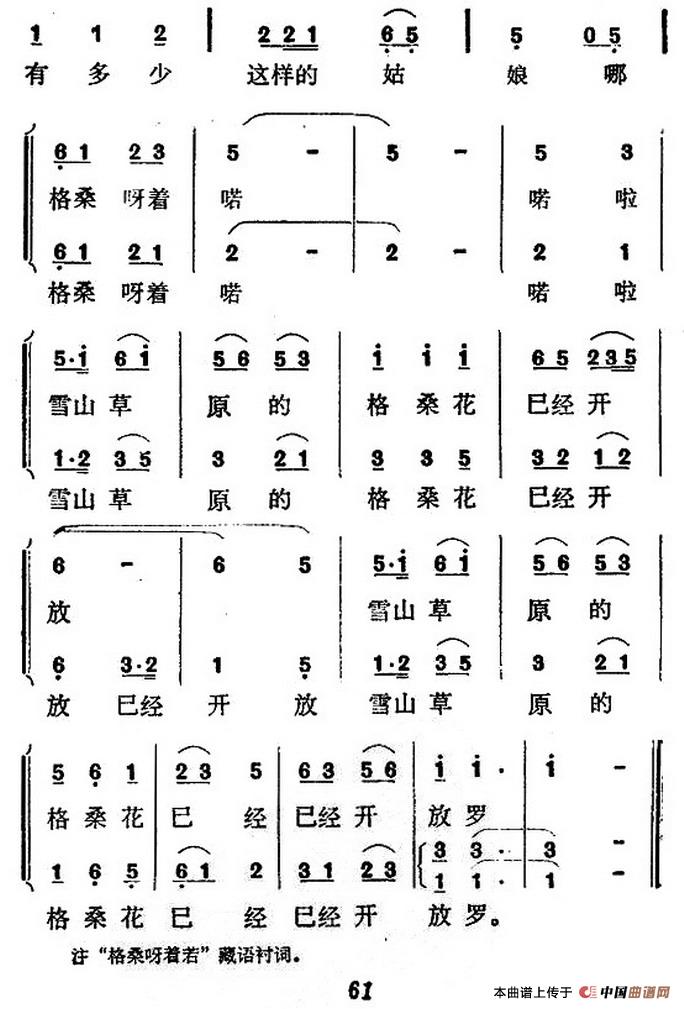 1 1 2 | 2 2 1 6 5 | 5 0 5 |
有 多 少 这样的 姑 娘 哪
6 1 2 3 | 5 - | 5 - | 5 3 |
格桑 呀着 喏 喏 啦
6 1 2 1 | 2 - | 2 - | 2 1 |
格桑 呀着 喏 喏 啦
5·i 6 i | 5 6 5 3 | i i i | 6 5 2 3 5 |
雪山 草 原 的 格 桑 花 已经 开
1·2 3 5 | 3 2 1 | 3 3 5 | 3 2 1 2 |
雪山 草 原 的 格 桑 花 已经 开
6 - | 6 5 | 5·i 6 i | 5 6 5 3 |
放 雪山 草 原 的
6 3·2 | 1 5 | 1·2 3 5 | 3 2 1 |
放 已经 开 放 雪山 草 原 的
5 6 1 | 2 3 5 | 6 3 5 6 | i i · | i - ‖
格 桑 花 已 经 已经 开 放 罗
1 6 5 | 6 1 2 | 3 1 2 3 | 3 3 · | 3 -
1 1 · | 1 -
格 桑 花 已 经 已经 开 放 罗。
注“格桑呀着若”藏语衬词。
61
本曲谱上传于 中国曲谱网